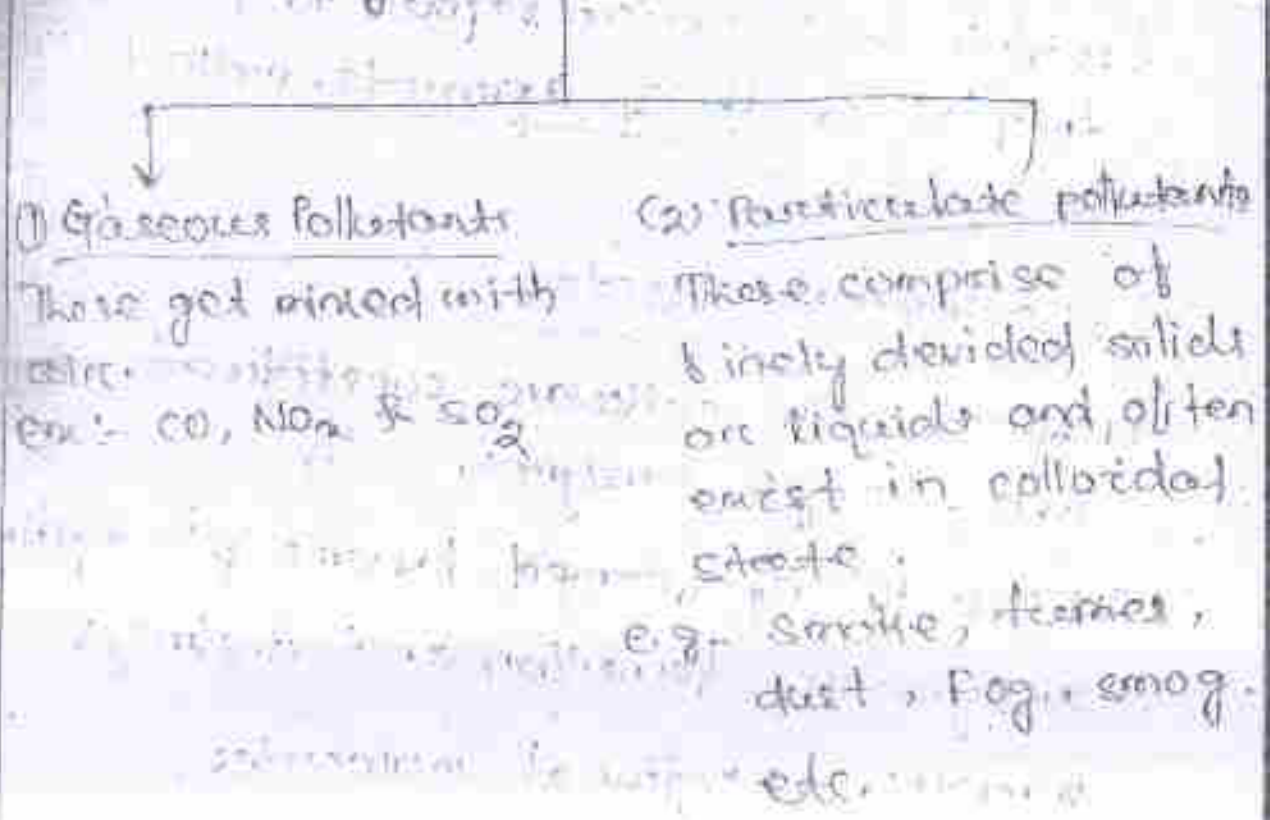 (1) Gaseous Pollutants
These get mixed with
air.
ex:- CO, NOx & SO2
(2) Particulate pollutants
These comprise of
finely devided solids
or liquids and often
exist in colloidal
state.
e.g- smoke, fumes,
dust, Fog, smog.
etc.